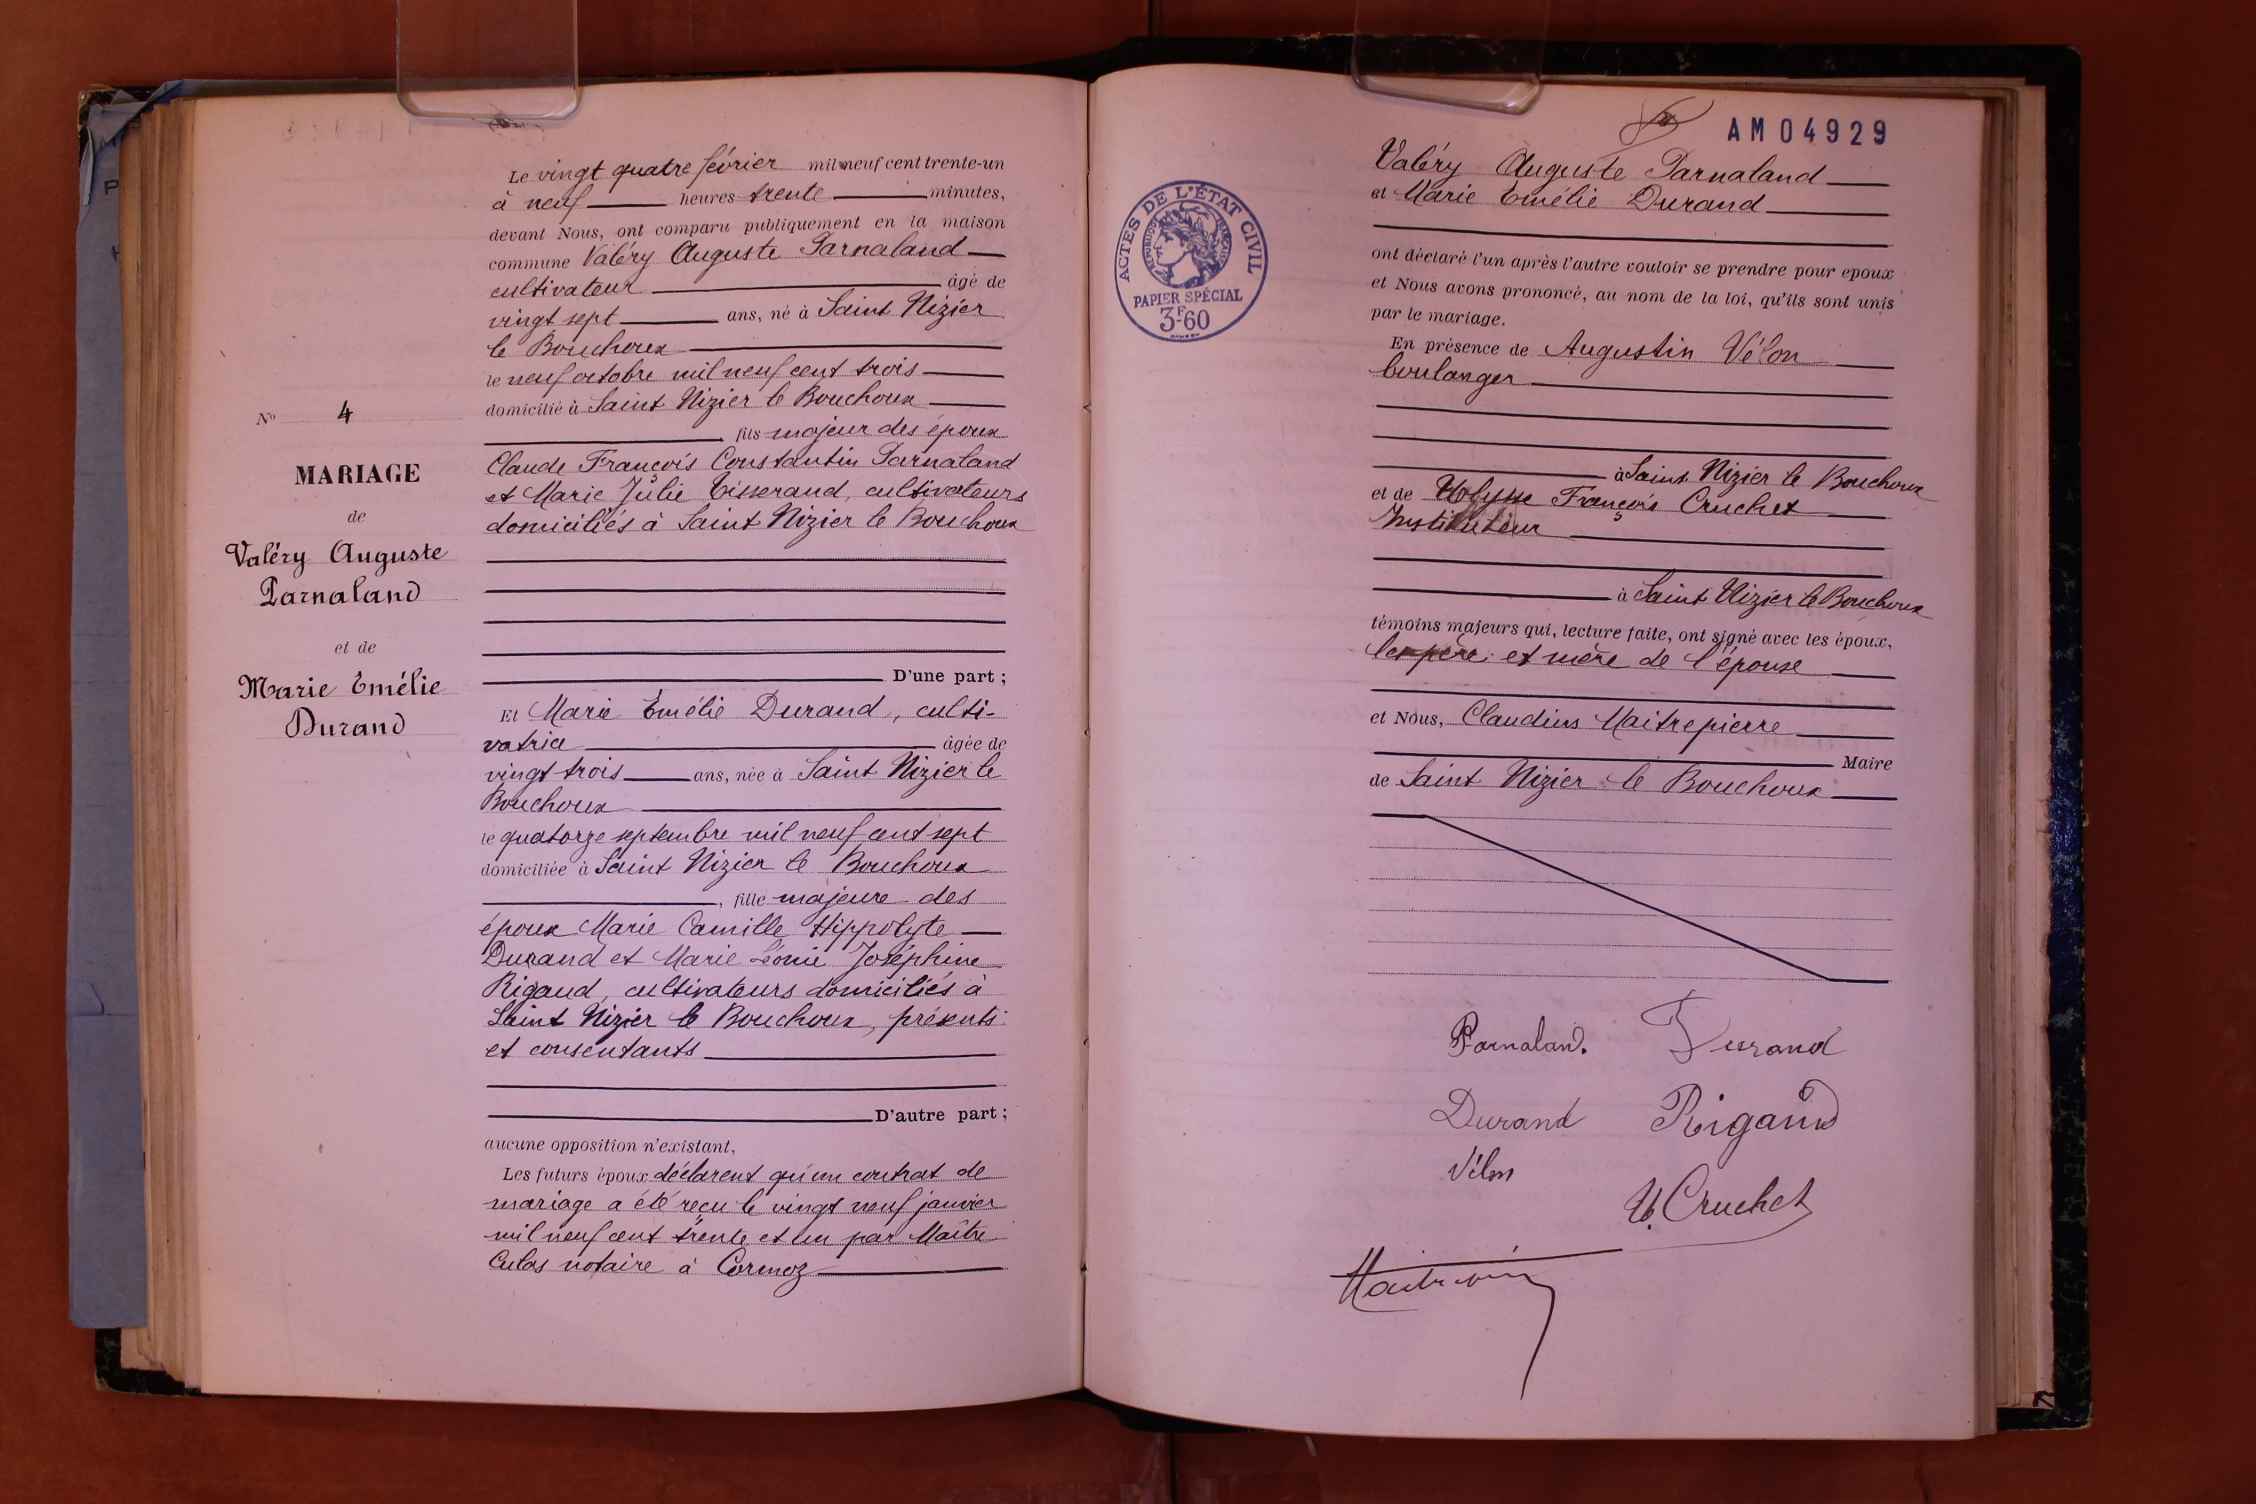 Le vingt quatre février mil neuf cent trente-un
à neuf heures trente minutes,
devant Nous, ont comparu publiquement en la maison
commune Valéry Auguste Parnaland
cultivateur âgé de
vingt sept ans, né à Saint Nizier
le Bouchoux
le neuf octobre mil neuf cent trois
domicilié à Saint Nizier le Bouchoux
fils majeur des époux
Claude François Constantin Parnaland
et Marie Julie Tisserand, cultivateurs
domiciliés à Saint Nizier le Bouchoux
D'une part ;
N° 4
MARIAGE
de
Valéry Auguste
Parnaland
et de
Marie Emélie
Durand
Et Marie Emélie Durand, culti-
vatrice âgée de
vingt trois ans, née à Saint Nizier le
Bouchoux
le quatorze septembre mil neuf cent sept
domiciliée à Saint Nizier le Bouchoux
, fille majeure des
époux Marie Camille Hippolyte
Durand et Marie Léonie Joséphine
Rigaud, cultivateurs domiciliés à
Saint Nizier le Bouchoux, présents
et consentants
D'autre part ;
aucune opposition n'existant,
Les futurs époux déclarent qu'un contrat de
mariage a été reçu le vingt neuf janvier
mil neuf cent trente et un par Maître
Culas notaire à Cormoz
AM04929
ACTES DE L'ÉTAT CIVIL
RÉPUBLIQUE FRANÇAISE
PAPIER SPÉCIAL
3F60
Valéry Auguste Parnaland
et Marie Emélie Durand
ont déclaré l'un après l'autre vouloir se prendre pour époux
et Nous avons prononcé, au nom de la loi, qu'ils sont unis
par le mariage.
En présence de Augustin Vélon
boulanger
à Saint Nizier le Bouchoux
et de Ulysse François Cruchet
Instituteur
à Saint Nizier le Bouchoux
témoins majeurs qui, lecture faite, ont signé avec les époux,
les père et mère de l'épouse
et Nous, Claudius Maitrepierre
Maire
de Saint Nizier le Bouchoux
Parnaland. Durand
Durand Rigaud
Vélon
U. Cruchet